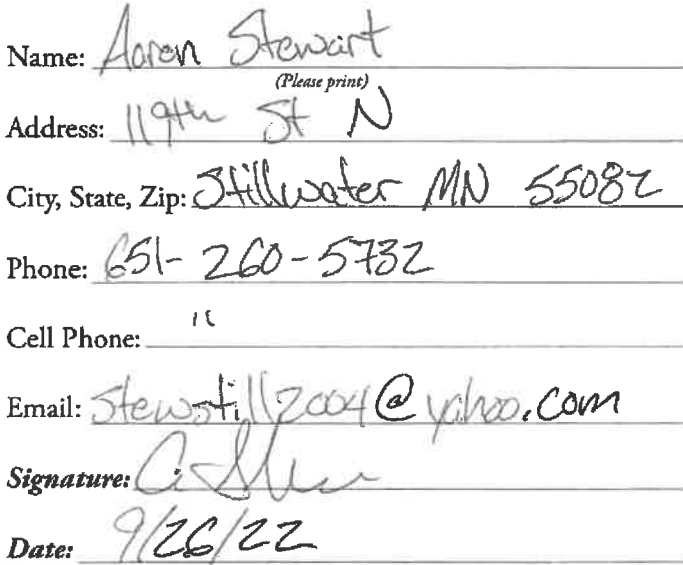 Name: Aaron Stewart
(Please print)
Address: 119th St N
City, State, Zip: Stillwater MN 55082
Phone: 651-260-5732
Cell Phone: "
Email: stewstill2004@yahoo.com
Signature:
Date: 9/26/22